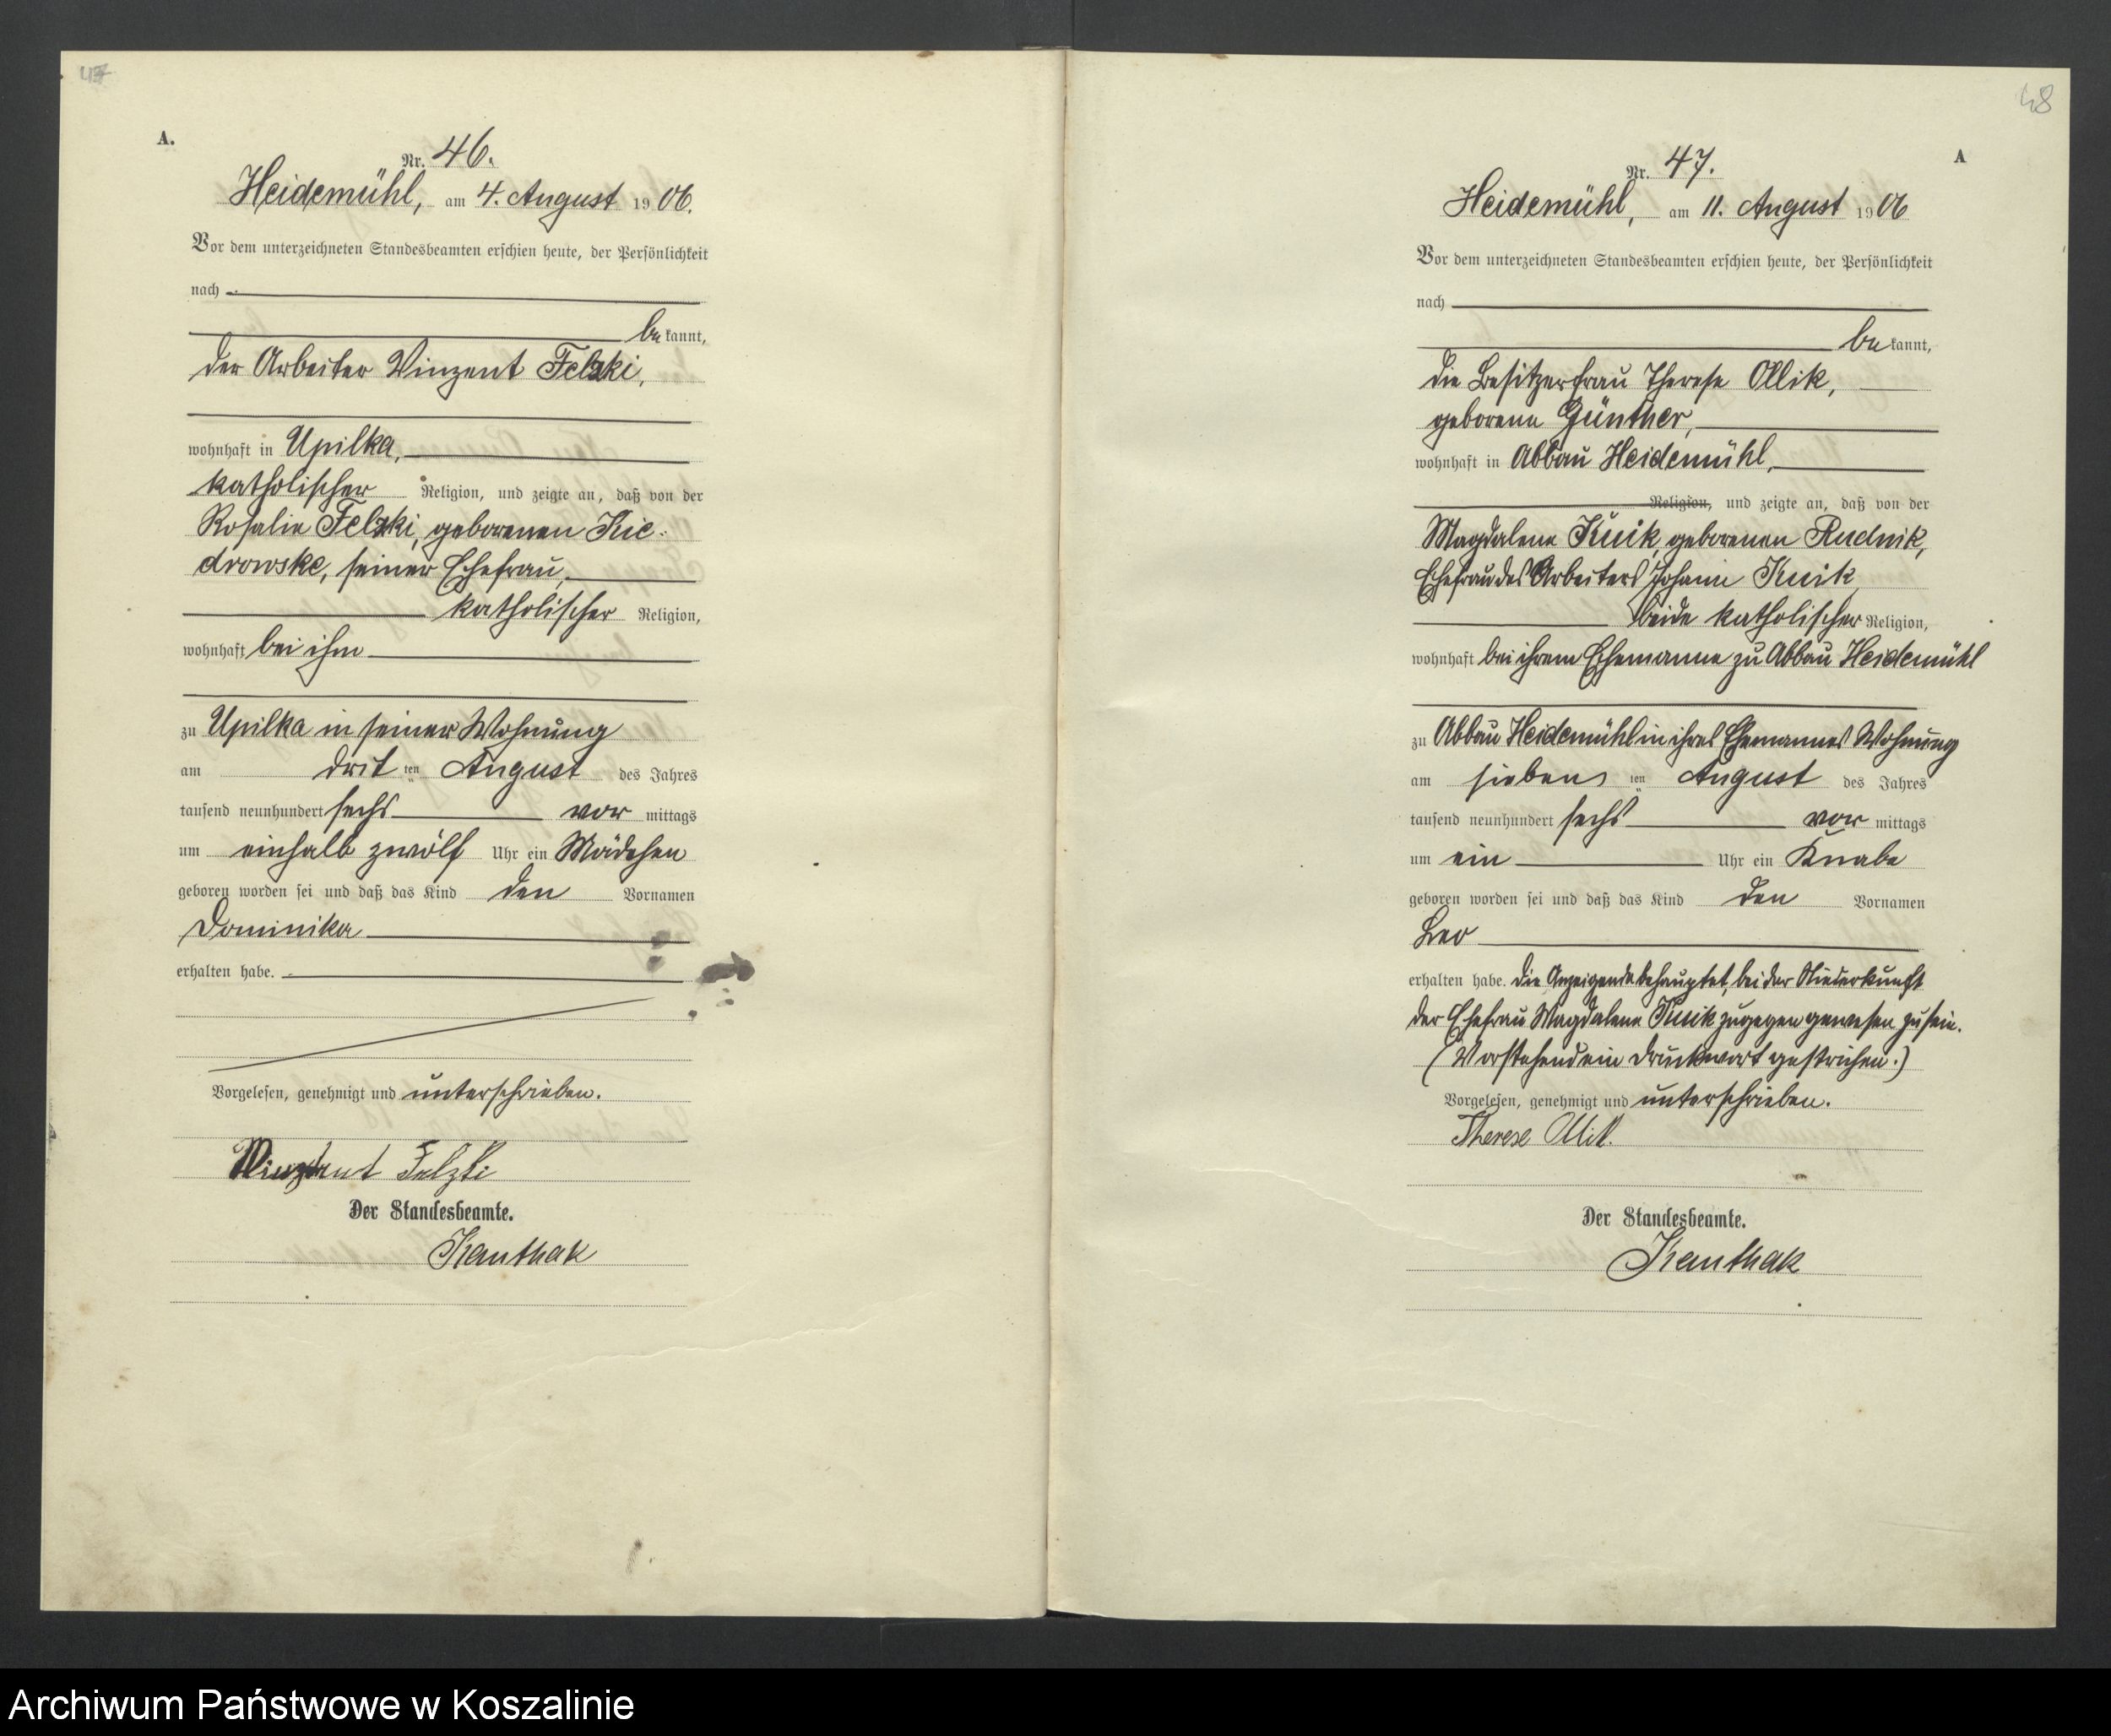 47
A.
Nr. 46.
Heidemühl, am 4. August 1906.
Vor dem unterzeichneten Standesbeamten erschien heute, der Persönlichkeit
nach
bekannt,
der Arbeiter Vinzent Felzki,
wohnhaft in Upilka,
katholischer Religion, und zeigte an, daß von der
Rosalie Felzki, geborenen Kie-
drowske, seiner Ehefrau,
katholischer Religion,
wohnhaft bei ihm
zu Upilka in seiner Wohnung
am dritten August des Jahres
tausend neunhundert sechs vormittags
um einhalb zwölf Uhr ein Mädchen
geboren worden sei und daß das Kind den Vornamen
Dominika
erhalten habe.
Vorgelesen, genehmigt und unterschrieben.
Vinzent Felzki
Der Standesbeamte.
Kauthak
48
A
Nr. 47.
Heidemühl, am 11. August 1906
Vor dem unterzeichneten Standesbeamten erschien heute, der Persönlichkeit
nach
bekannt,
die Besitzerfrau Therese Ollik,
geborene Günther,
wohnhaft in Abbau Heidemühl,
Religion, und zeigte an, daß von der
Magdalene Kuik, geborenen Rudnik,
Ehefrau des Arbeiters Johann Kuik
beide katholischer Religion,
wohnhaft bei ihrem Ehemanne zu Abbau Heidemühl
zu Abbau Heidemühl in ihres Ehemannes Wohnung
am siebenten August des Jahres
tausend neunhundert sechs vormittags
um ein Uhr ein Knabe
geboren worden sei und daß das Kind den Vornamen
Leo
erhalten habe. Die Anzeigende behauptet, bei der Niederkunft
der Ehefrau Magdalene Kuik zugegen gewesen zu sein.
(Vorstehend ein Druckwort gestrichen.)
Vorgelesen, genehmigt und unterschrieben.
Therese Ollik.
Der Standesbeamte.
Kauthak
Archiwum Państwowe w Koszalinie